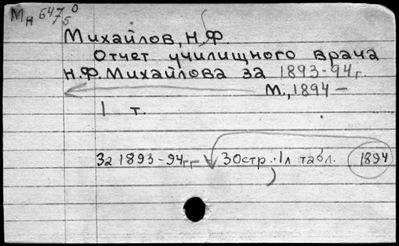 Мн 647/5 0
Михайлов, Н.Ф
Отчет училищного врача
Н.Ф. Михайлова за 1893-94г.
М., 1894 —
1 т.
За 1893-94гг. 30стр., 1л табл. 1894